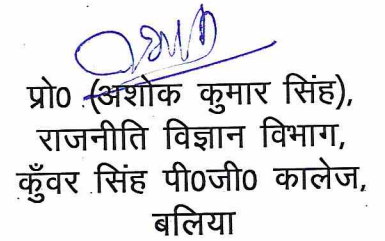 प्रो0 (अशोक कुमार सिंह),
राजनीति विज्ञान विभाग,
कुँवर सिंह पी0जी0 कालेज,
बलिया